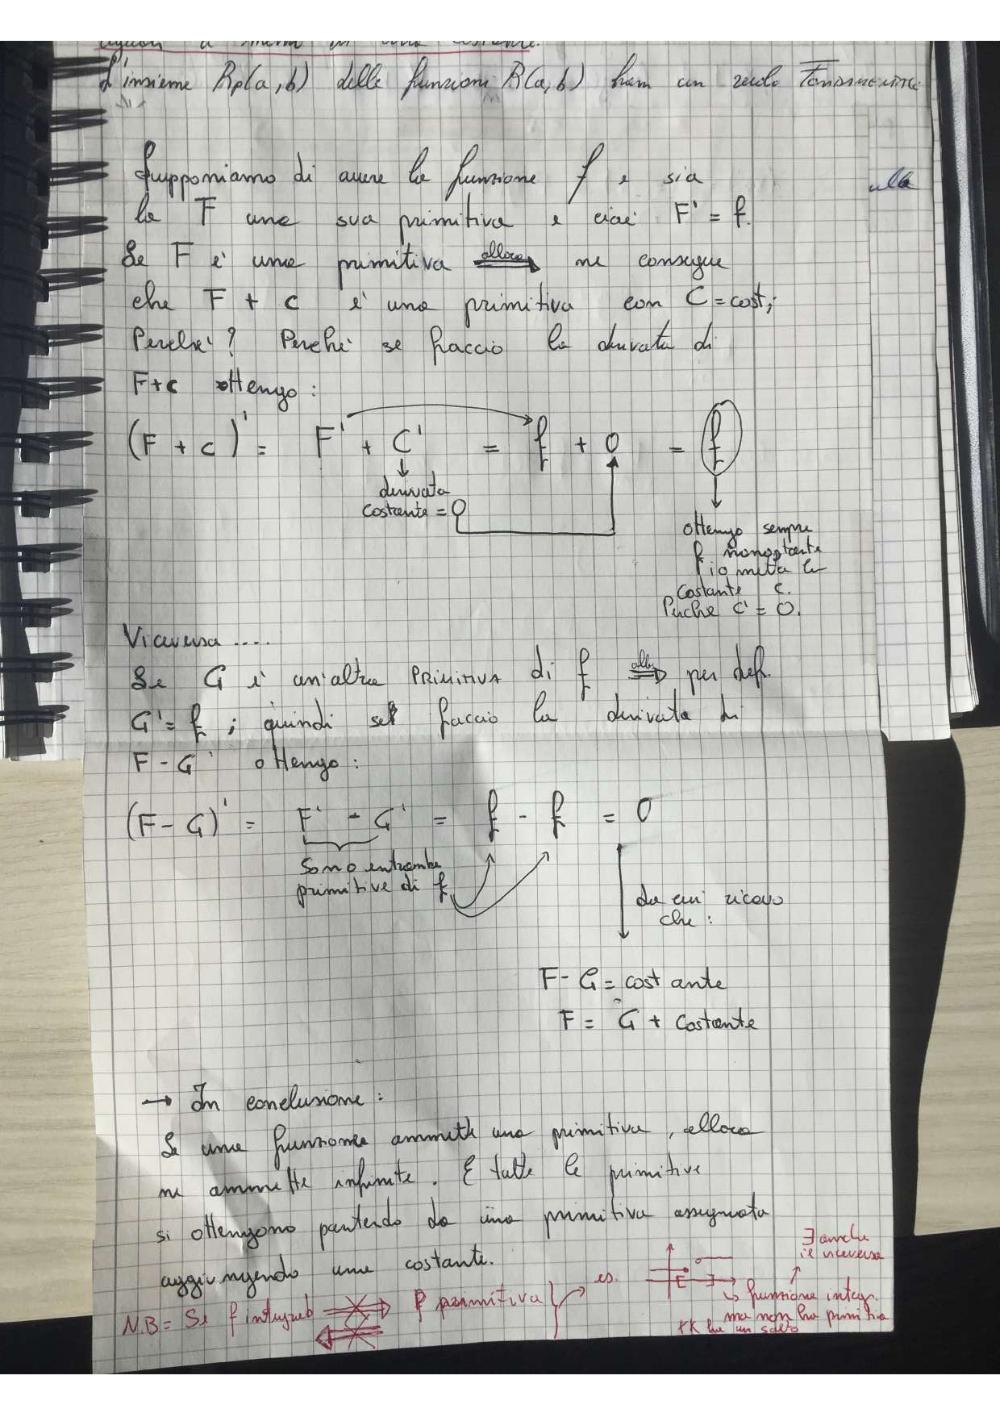 uguali a meno di una costante.
L'insieme Rp(a,b) delle funzioni R(a,b) ham un ruolo
Supponiamo di avere la funzione f e sia
la F una sua primitiva e cioè F' = f.
Se F è una primitiva allora ne consegue
che F + c è una primitiva con C = cost;
Perché? Perché se faccio la derivata di
F+c ottengo:
(F + c)' = F' + C' = f + 0 = f
derivata
costante = 0
ottengo sempre
f nonostante
io metta la
costante c.
Perche C' = 0.
Viceversa ....
Se G è un'altra PRIMITIVA di f allora per def.
G' = f ; quindi se faccio la derivata di
F - G ottengo:
(F - G)' = F' - G' = f - f = 0
Sono entrambe
primitive di f
da cui ricavo
che:
F - G = costante
F = G + costante
→ In conclusione:
Se una funzione ammette una primitiva, allora
ne ammette infinite. E tutte le primitive
si ottengono partendo da una primitiva assegnata
aggiungendo una costante.
∃ anche
il viceversa
N.B = Se f integrab primitiva es.
funzione integr.
ma non ha primitiva
xk ha un salto